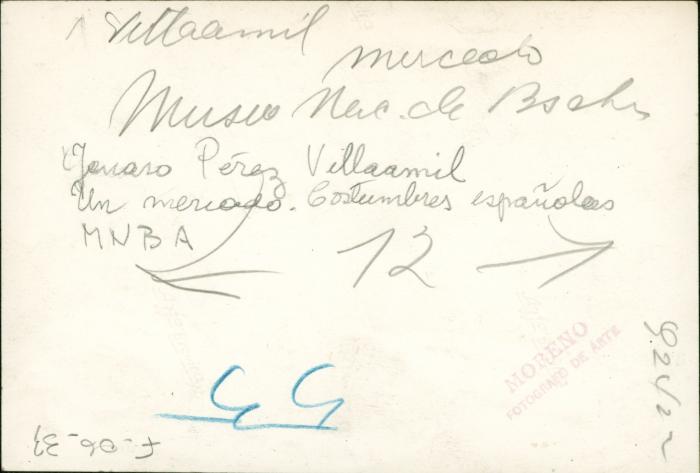 Villaamil
mercado
Museo Nac. de
Jenaro Pérez Villaamil
Un mercado. Costumbres españolas
MNBA
12
MORENO
FOTOGRAFO DE ARTE